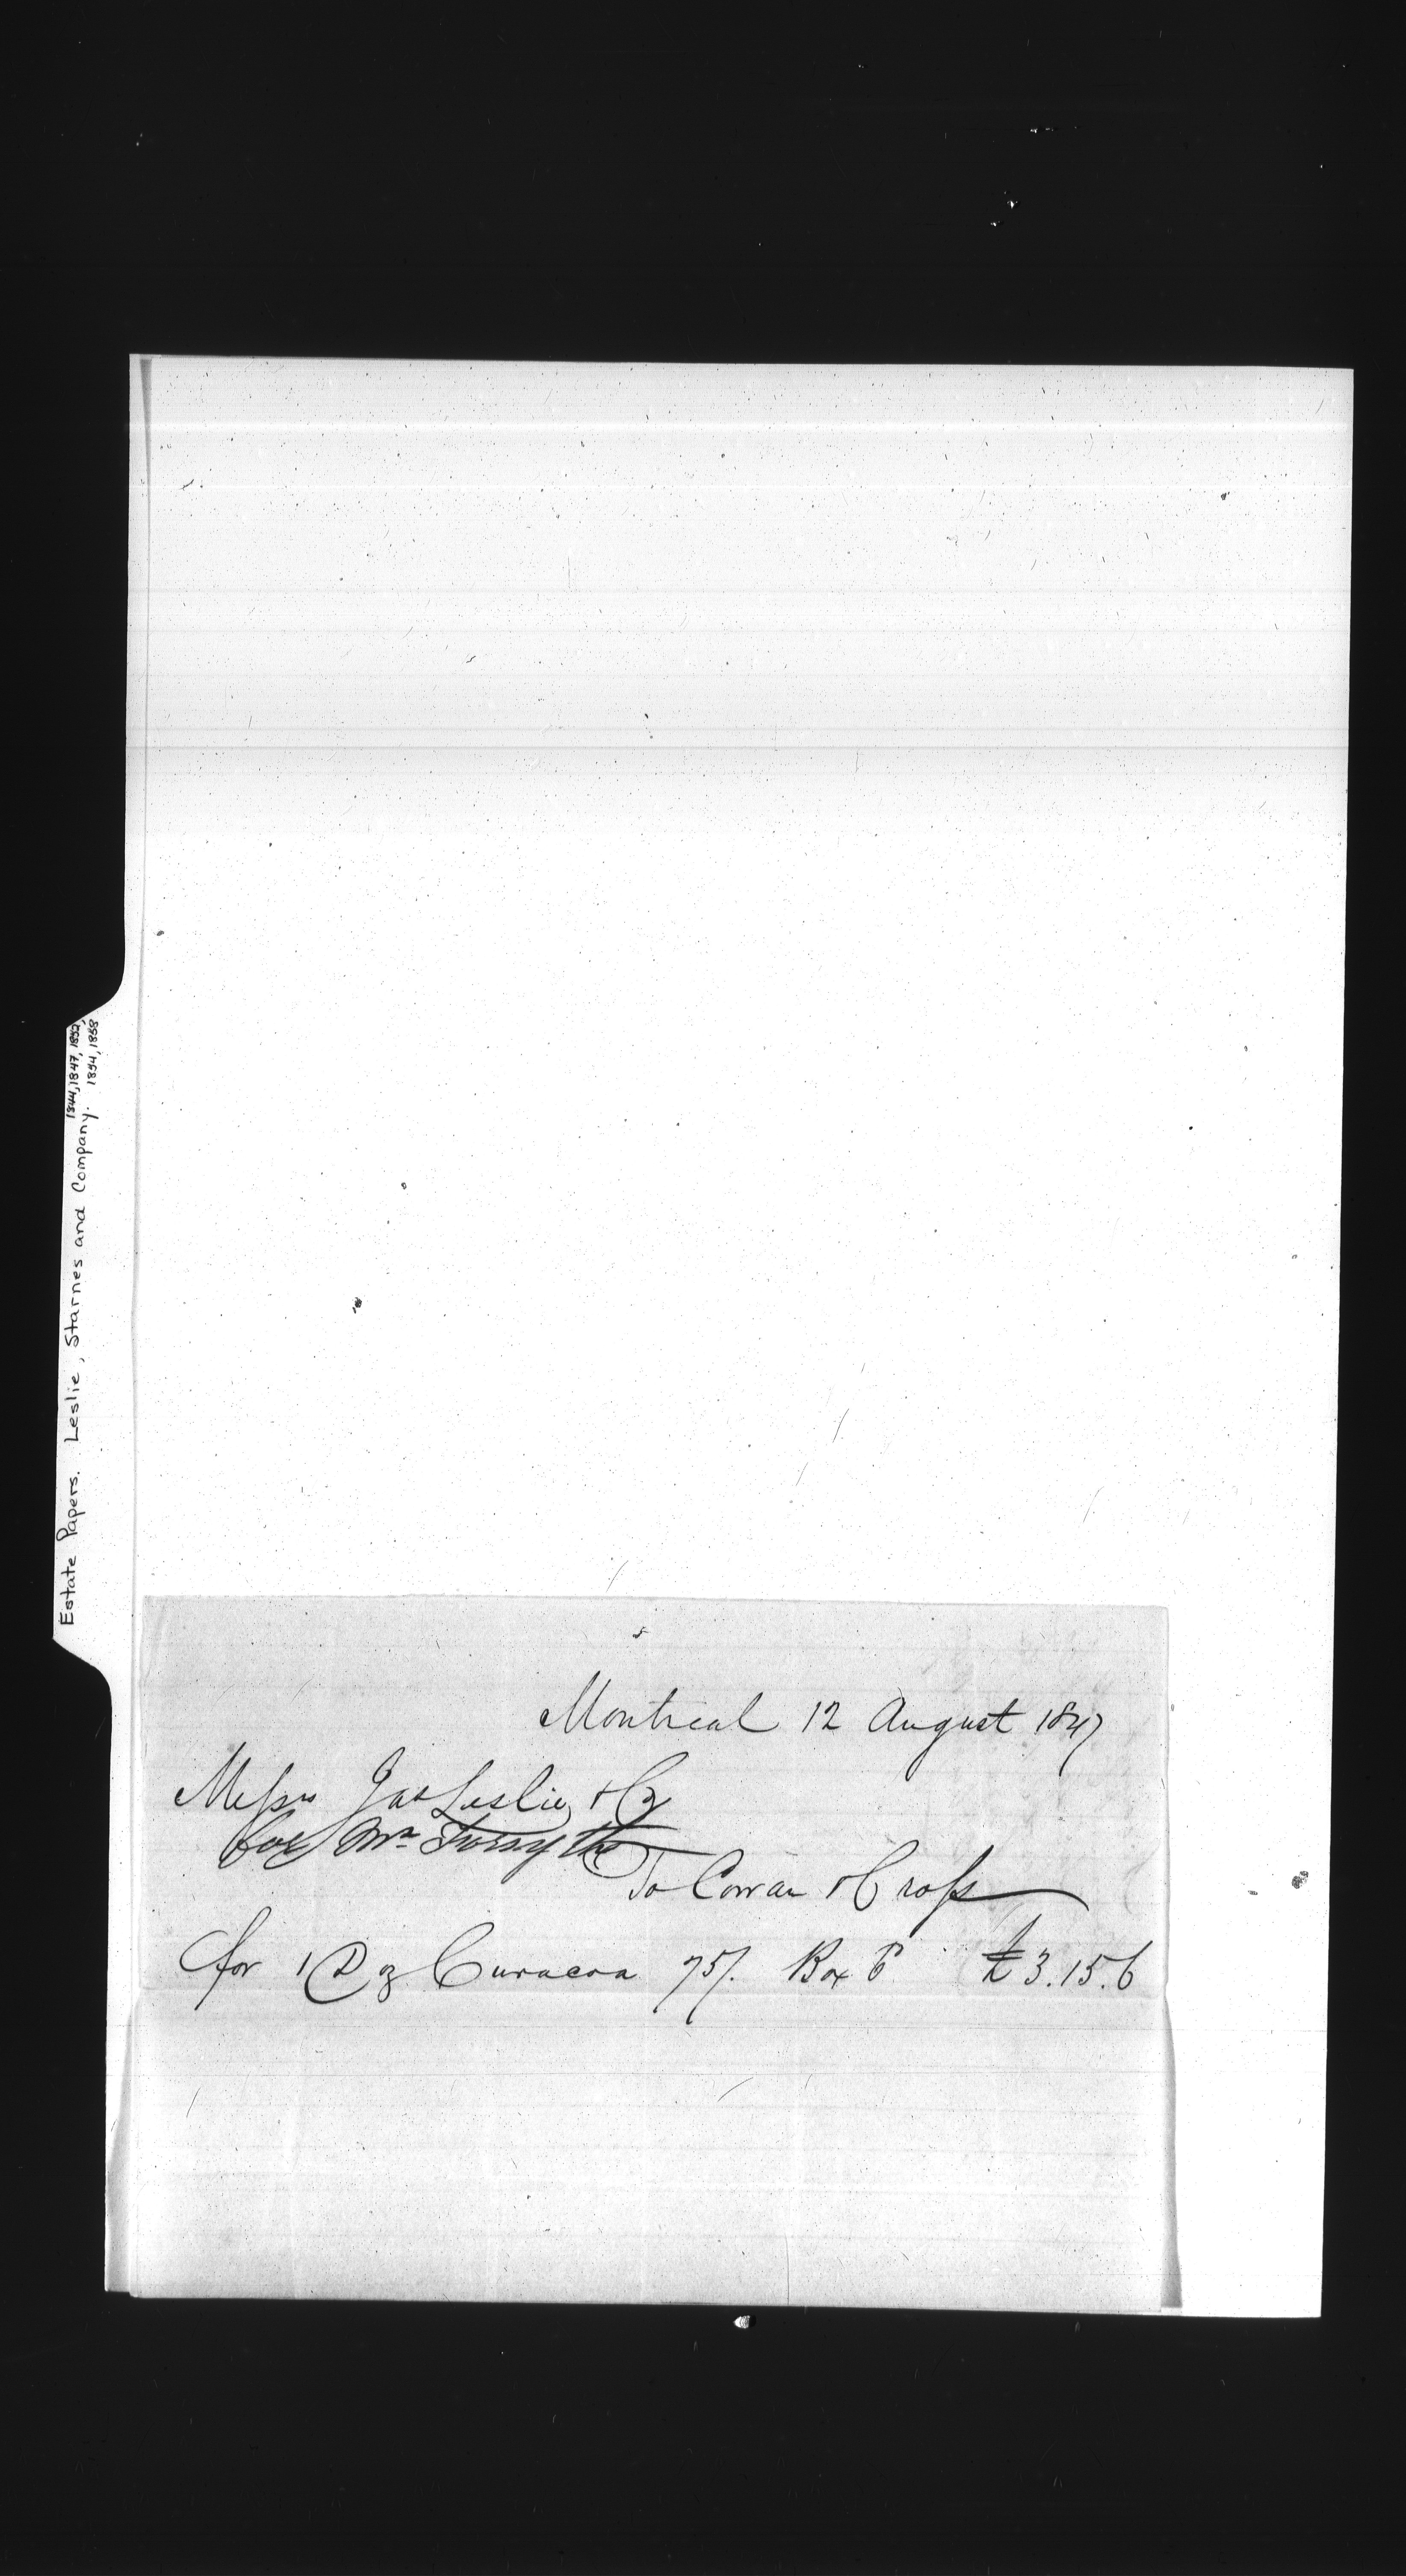 Estate Papers. Leslie, Starnes and Company. 1844, 1847, 1852,
1854, 1858
Montreal 12 August 1847
Messrs Jas Leslie & Co
for Mr Forsyth
To Cowan & Cross
for 1 Doz Curacoa 75/. Box 6d £3.15.6